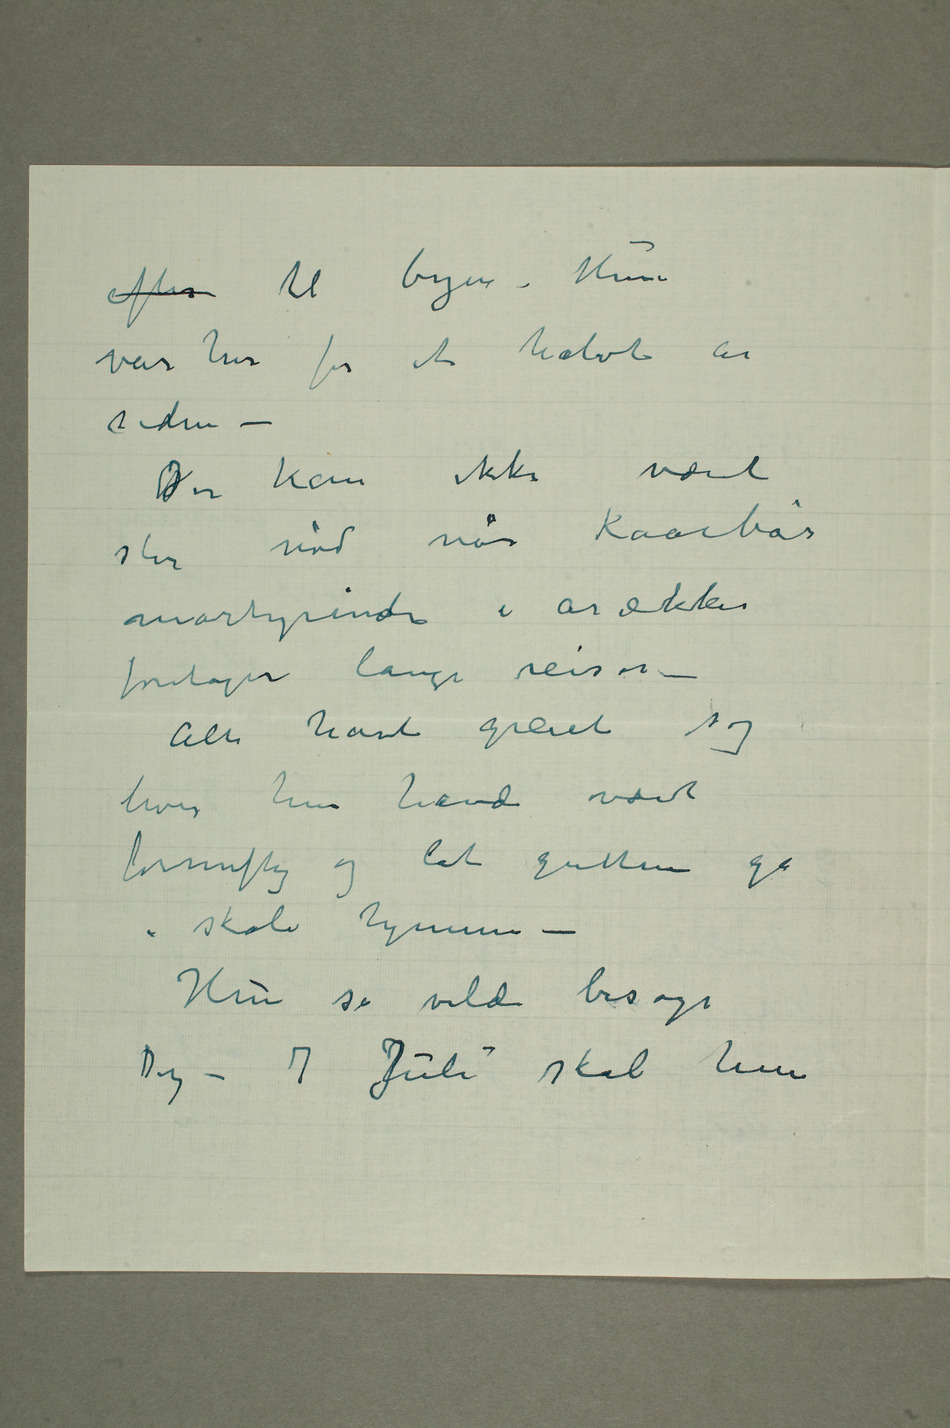 ~~efter~~ til byen. Hun
var her for et halvt år
siden –
Der kan ikke været
stor nød når Kaarbøs
martyrinde i årekker
foretager lange reiser –
Alt havt greiet sig
hvis hun havde været
fornuftig og lat gutten gå
i skole hjemme –
Hun så vilde besøge
Dig – I Juli skal hun